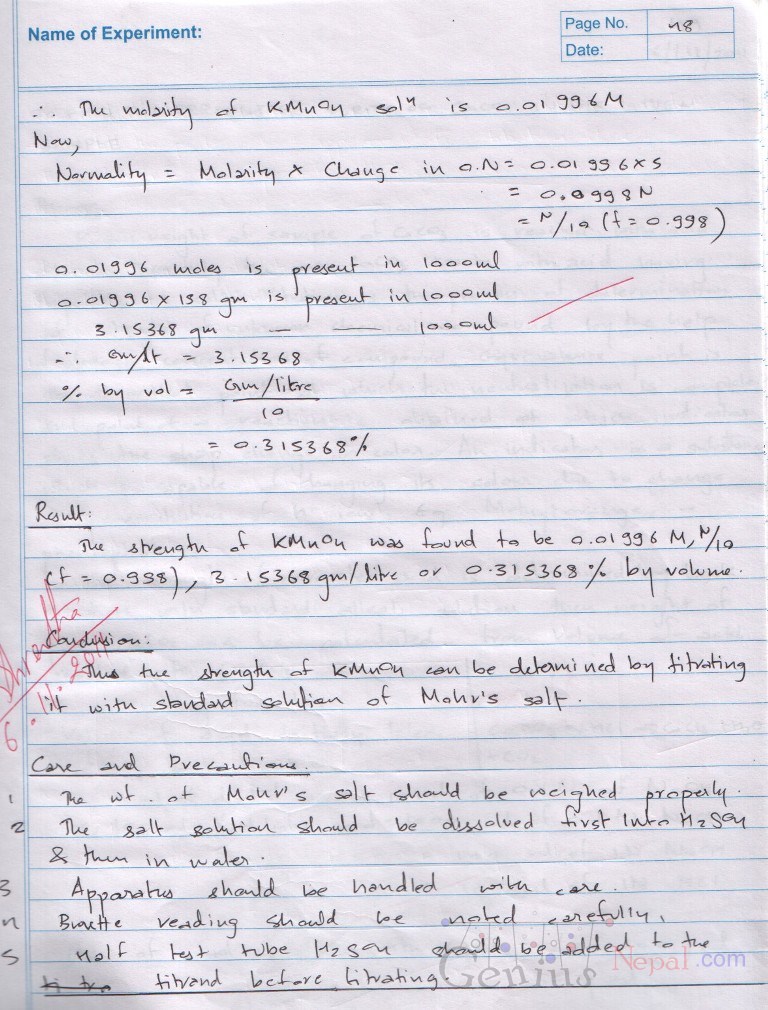 Name of Experiment:
Page No. 48
Date:
∴ The molarity of KMnO4 solⁿ is 0.01996M
Now,
Normality = Molarity × Change in O.N = 0.01996×5
= 0.0998N
= N/10 (f = 0.998)
0.01996 moles is present in 1000ml
0.01996 × 158 gm is present in 1000ml
3.15368 gm — — 1000ml
∴ gm/lt = 3.15368
% by vol = Gm/litre
10
= 0.315368%
Result:
The strength of KMnO4 was found to be 0.01996 M, N/10
(f = 0.998), 3.15368 gm/litre or 0.315368% by volume.
Conclusion:
Thus the strength of KMnO4 can be determined by titrating
it with standard solution of Mohr's salt.
Care and Precautions.
1 The wt. of Mohr's salt should be weighed properly.
2 The salt solution should be dissolved first into H2SO4
& then in water.
3 Apparatus should be handled with care.
4 Burette reading should be noted carefully.
5 Half test tube H2SO4 should be added to the
titrand before titrating.
Genius Nepal.com